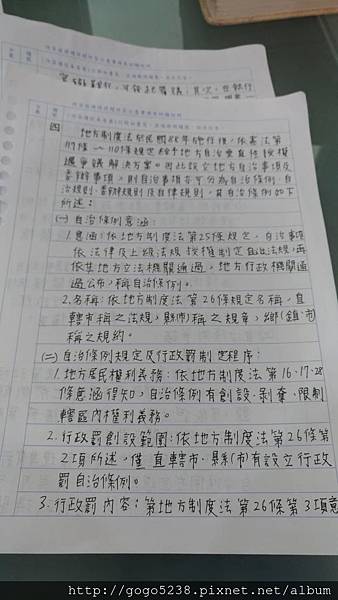 四 地方制度法於民國88年施行後，依憲法第
118條～110條規定給予地方自治垂直分權模
選爭議解決方案。因此設立地方自治事項及
委辦事項，則自治事項亦可分為自治條例、自
治規則、委辦規則及自律規則，其自治條例如下
所述：
(一)自治條例意涵：
1.意涵：依地方制度法第25條規定，自治事項
依法律及上級法規授權制定自治法規，再
依其地方立法機關通過，地方行政機關通
過公布，稱自治條例。
2.名稱：依地方制度法第26條規定名稱，直
轄市稱之法規，縣(市)稱之規章，鄉(鎮、市)
稱之規約。
(二)自治條例規定及行政罰制定程序：
1.地方居民權利義務：依地方制度法第16、17、28
條意涵得知，自治條例有創設、剝奪、限制
轄區內權利義務。
2.行政罰創設範圍：依地方制度法第26條第
2項所述，僅直轄市、縣(市)有設立行政
罰自治條例。
3.行政罰內容：第地方制度法第26條第3項意
http://gogo5238.pixnet.net/album